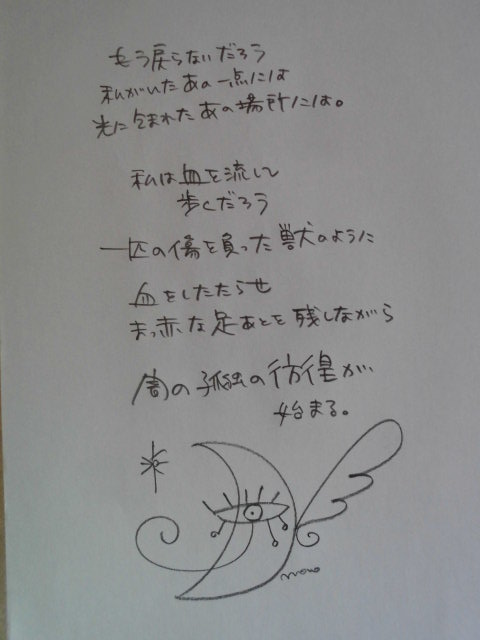 もう戻らないだろう
私がいたあの一点には
光に包まれたあの場所には。
私は血を流して
歩くだろう
一匹の傷を負った獣のように
血をしたたらせ
まっ赤な足あとを残しながら
闇の孤独の彷徨が、
始まる。